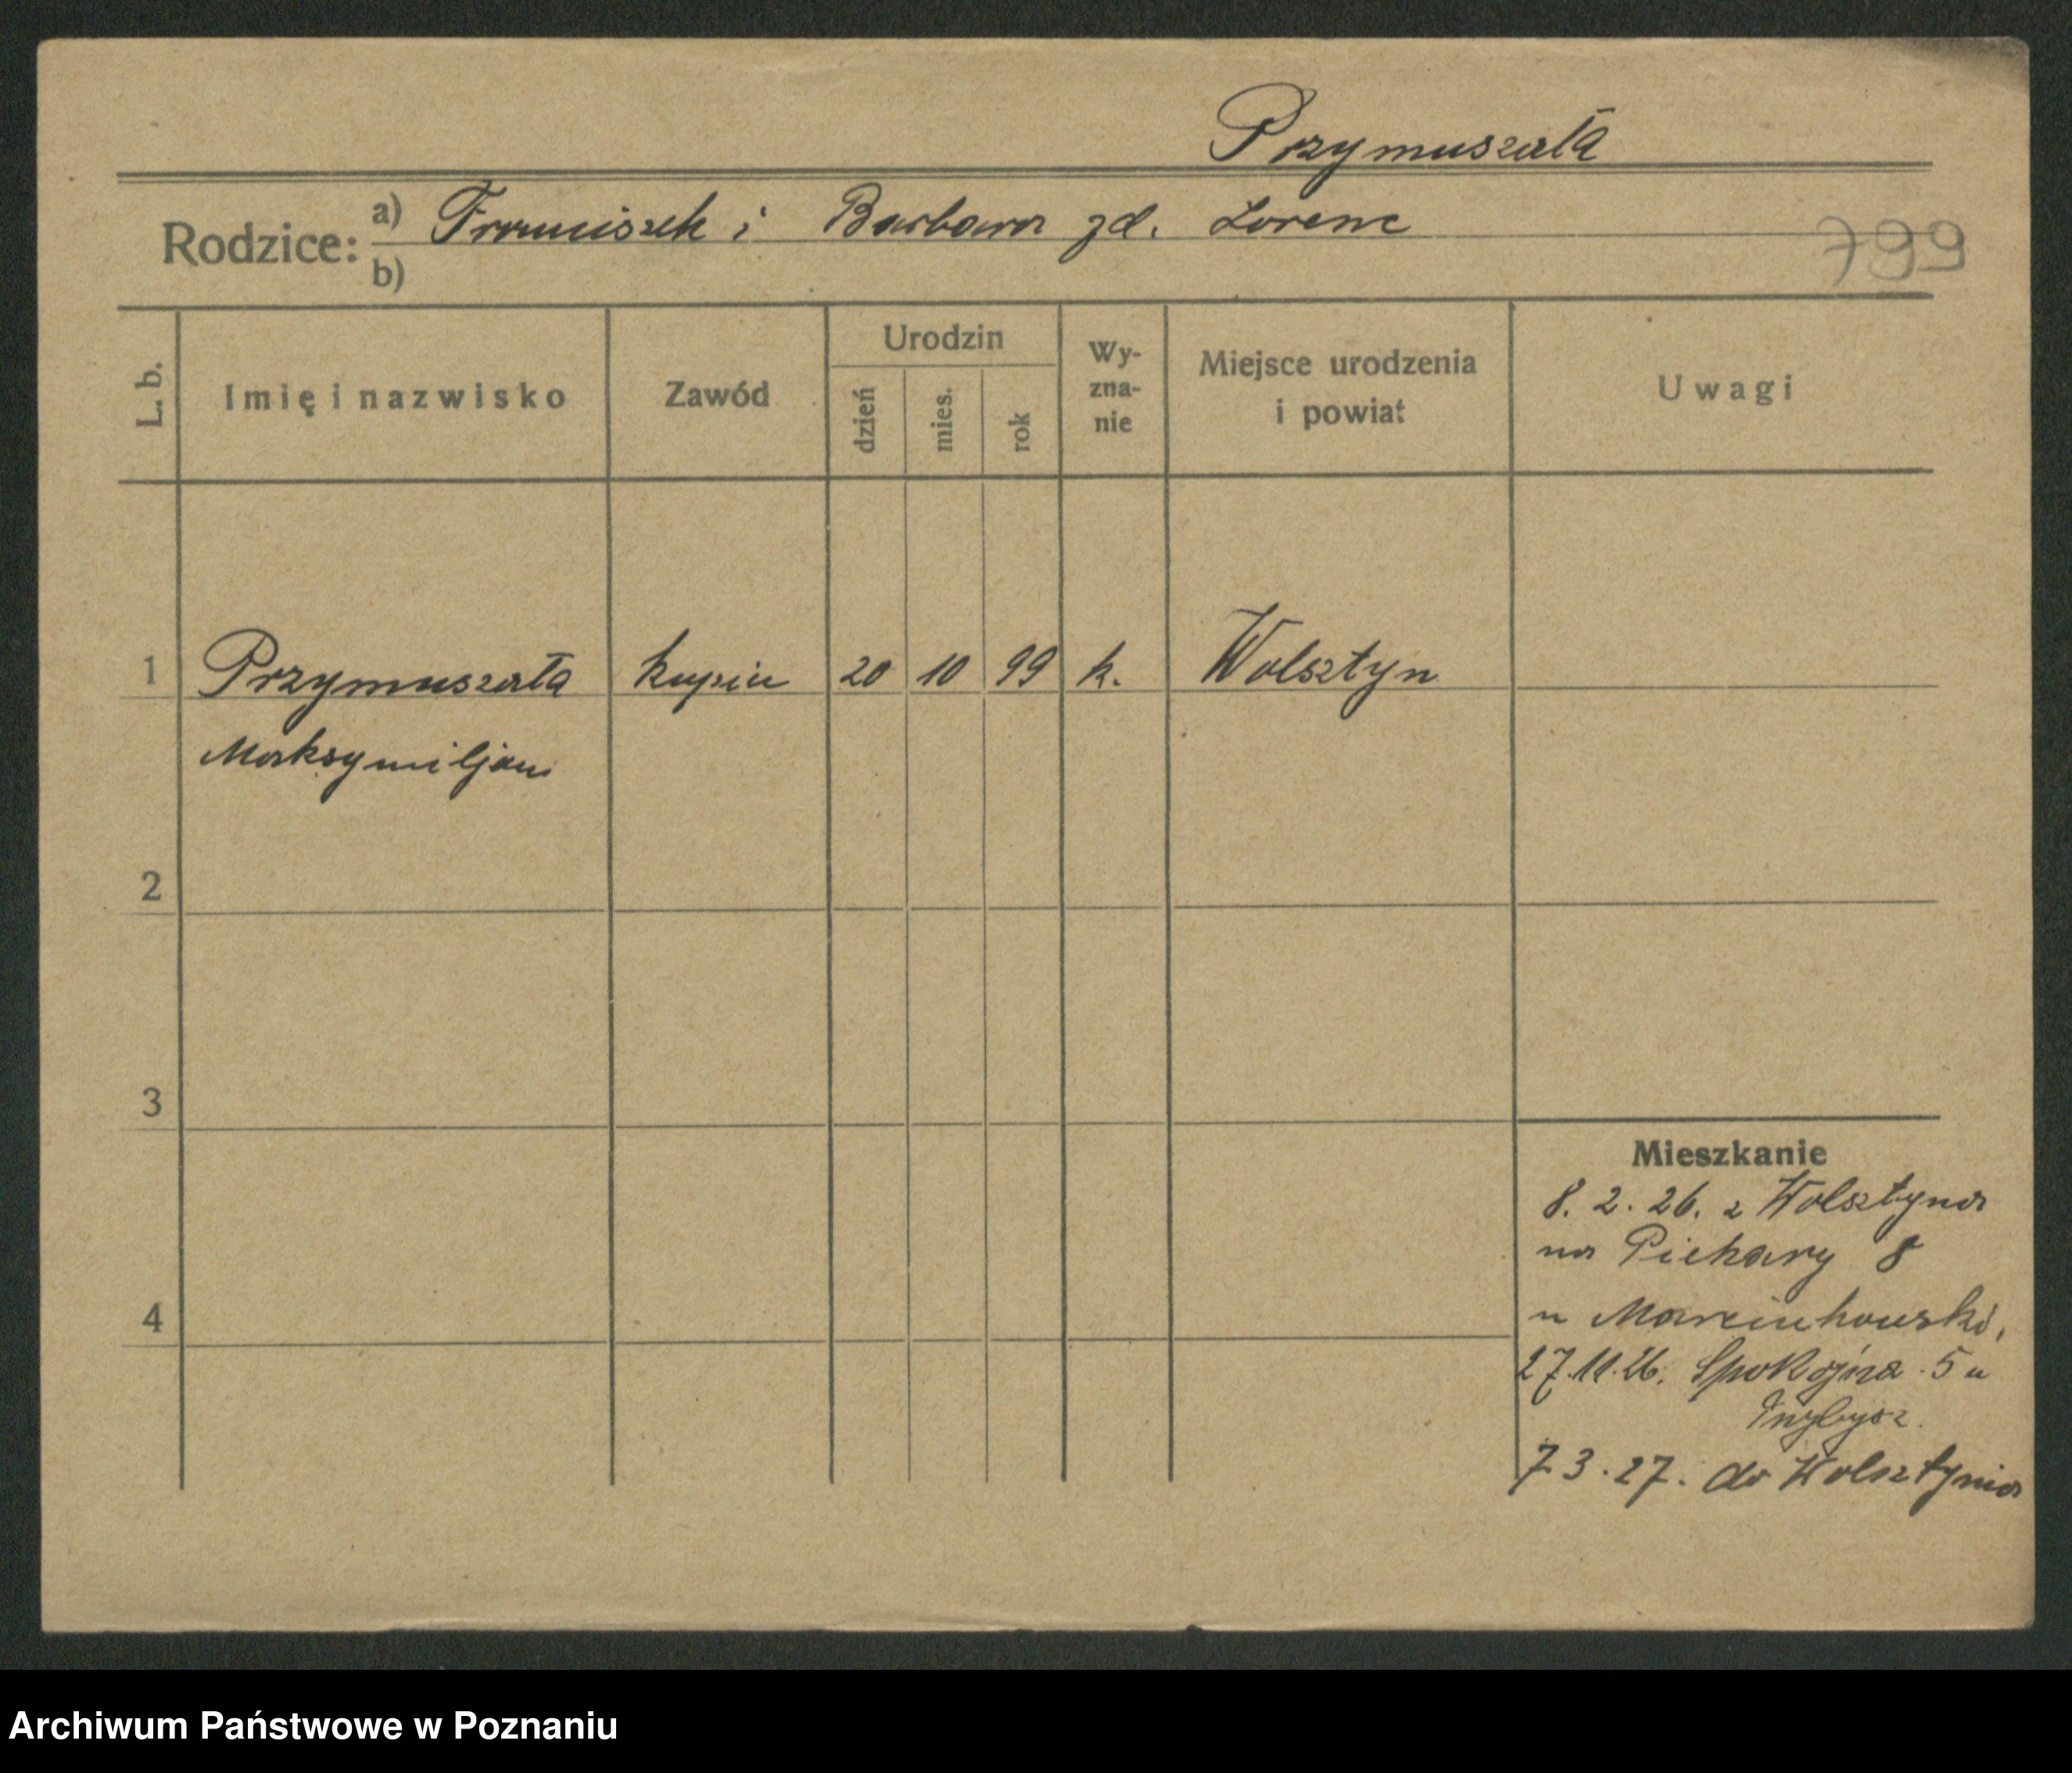 Przymuszała
Rodzice: a) Franciszek i Barbara zd. Lorenc
799
b)
L. b. Imię i nazwisko Zawód Urodzin dzień mies. rok Wy-zna-nie Miejsce urodzenia i powiat Uwagi
1 Przymuszała kupiec 20 10 99 k. Wolsztyn
Maksymiljan
2
3
4
Mieszkanie
8. 2. 26. z Wolsztyna
na Piekary 8
u
27.11.26. Spokojna 5 u
7 3. 27. do Wolsztynia
Archiwum Państwowe w Poznaniu